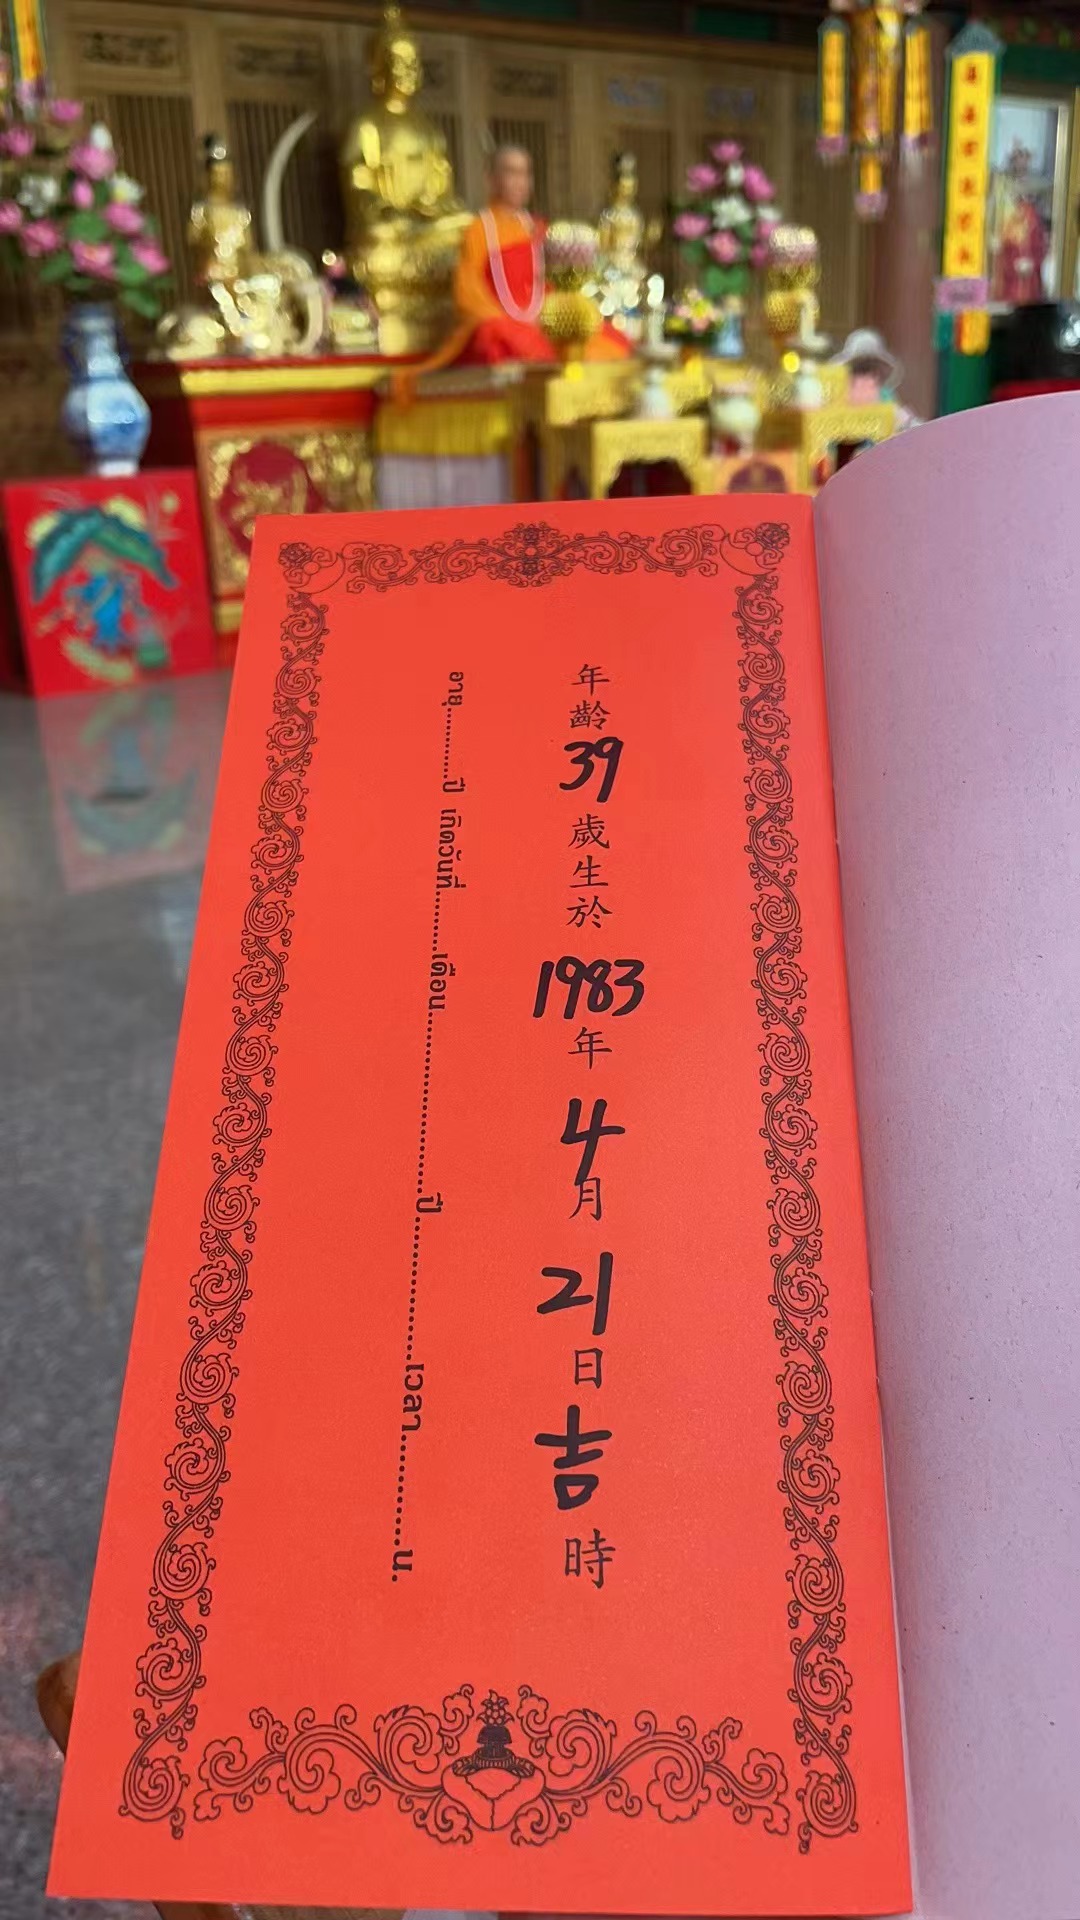 年齡39歲生於1983年4月21日吉時
อายุ...........ปี เกิดวันที่...........เดือน..............................ปี.........................เวลา................น.